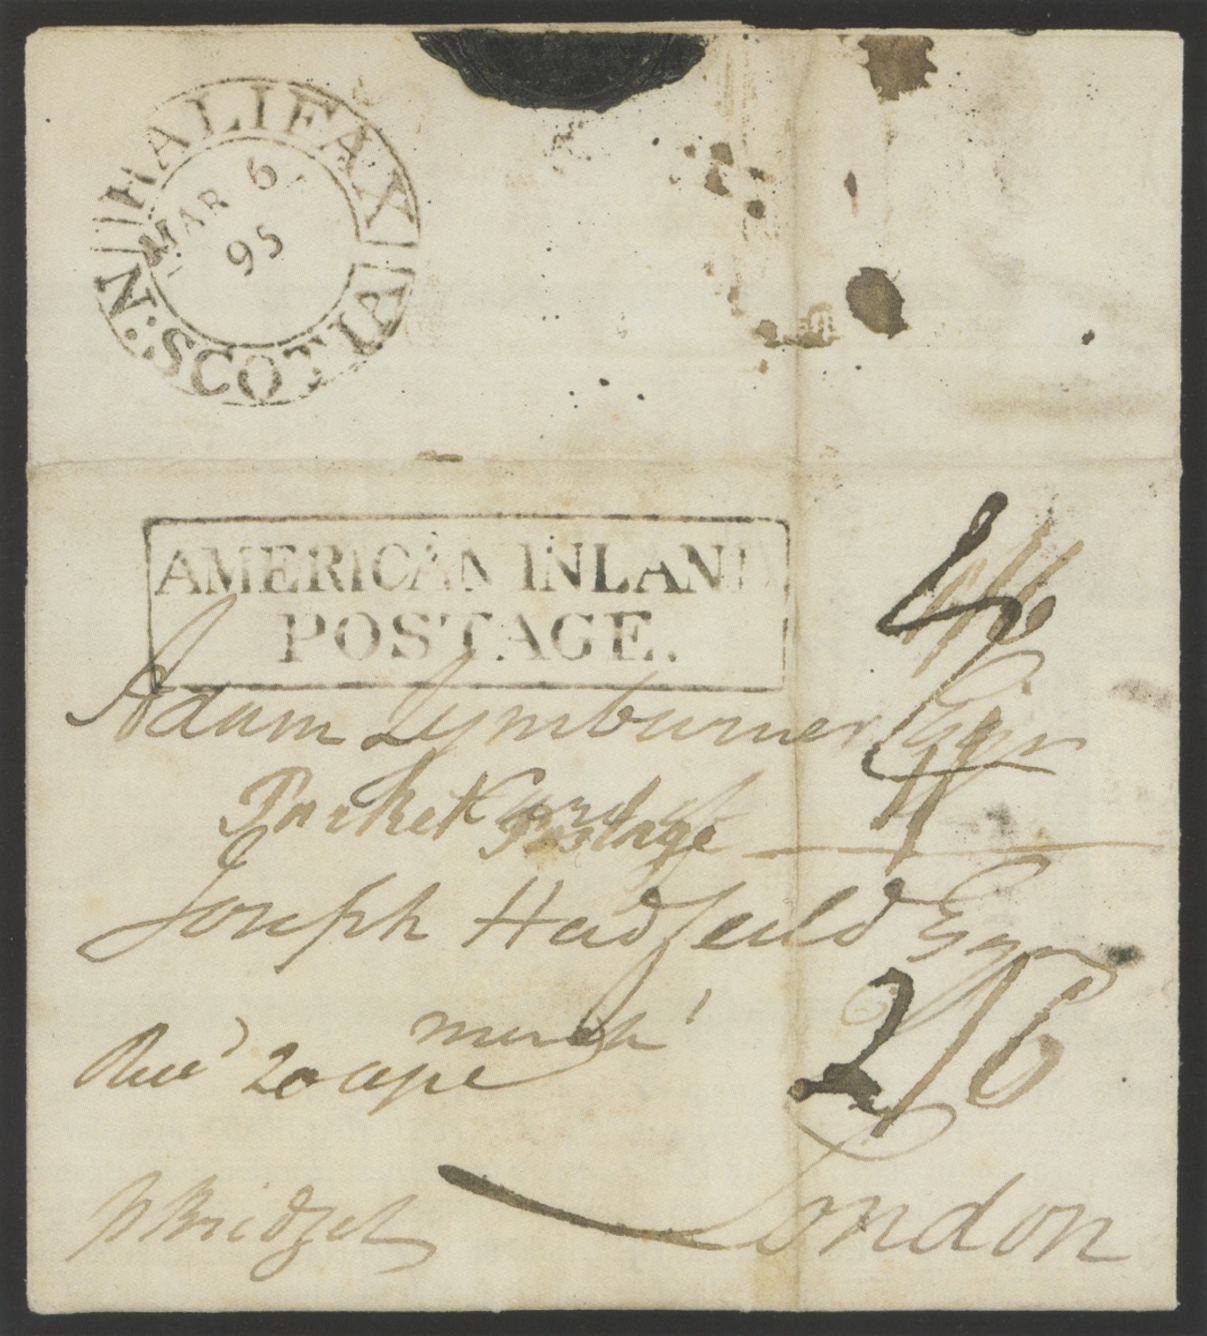 HALIFAX
MAR 6
95
N: SCOTIA
AMERICAN INLAND
POSTAGE.
Adam Lymburner Esqr
Packet Postage
Joseph Hadfeild Esqr
2/6
Recd 20 ape
London